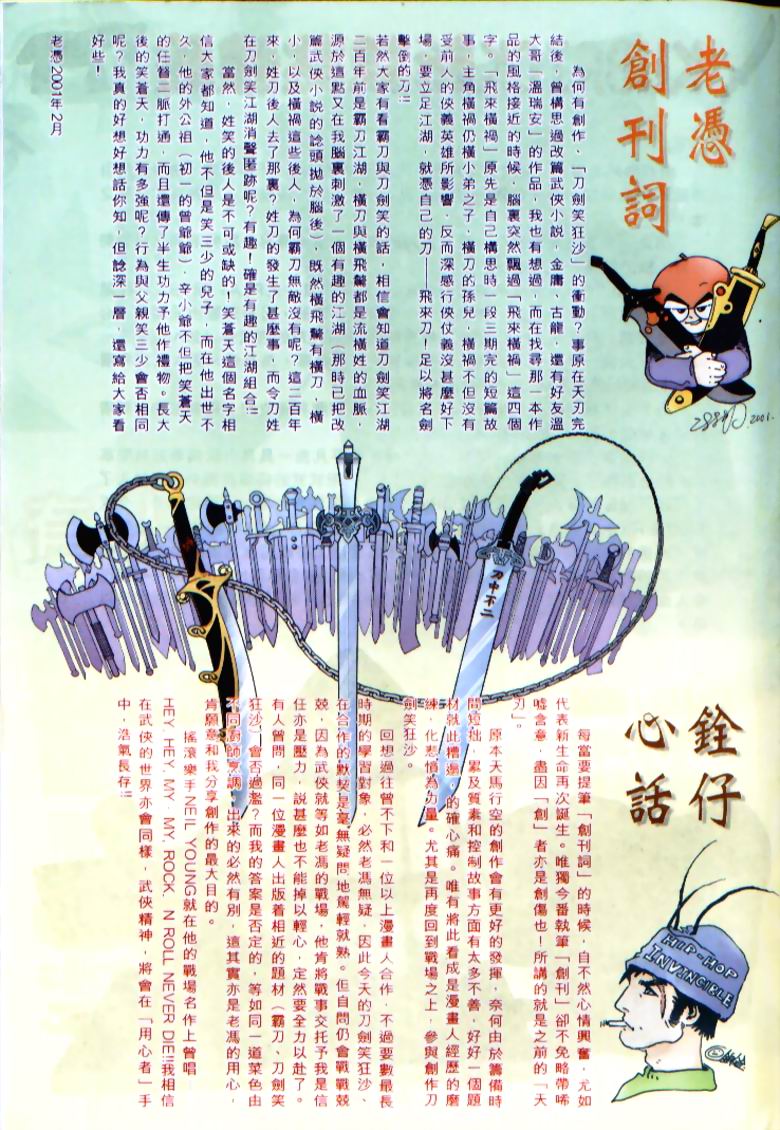 老憑
創刊詞
為何有創作，「刀劍笑狂沙」的衝動？事原在天刃完
結後，曾構思過改篇武俠小說，金庸、古龍，還有好友溫
大哥「溫瑞安」的作品，我也有想過，而在找尋那一本作
品的風格接近的時候，腦裏突然飄過「飛來橫禍」這四個
字。「飛來橫禍」原先是自己構思時一段三期完的短篇故
事，主角橫禍仍橫小弟之子，橫刀的孫兒，橫禍不但沒有
受前人的俠義英雄所影響，反而深感行俠仗義沒甚麼好下
場，要立足江湖，就憑自己的刀——飛來刀！足以將名劍
擊倒的刀!!
若然大家有看霸刀與刀劍笑的話，相信會知道刀劍笑江湖
二百年前是霸刀江湖，橫刀與橫飛驁都是流橫姓的血脈，
源於這點又在我腦裏刺激了一個有趣的江湖（那時已把改
篇武俠小說的諗頭拋於腦後），既然橫飛驁有橫刀，橫
小，以及橫禍這些後人，為何霸刀無敵沒有呢？這二百年
來，姓刀後人去了那裏？姓刀的發生了甚麼事，而令刀姓
在刀劍笑江湖消聲匿跡呢？有趣！確是有趣的江湖組合!!
當然，姓笑的後人是不可或缺的！笑蒼天這個名字相
信大家都知道，他不但是笑三少的兒子，而在他出世不
久，他的外公祖（初一的曾爺爺），辛小爺不但把笑蒼天
的任督二脈打通，而且還傳了半生功力予他作禮物。長大
後的笑蒼天，功力有多強呢？行為與父親笑三少會否相同
呢？我真的好想好想話你知，但諗深一層，還寫給大家看
好些！
老憑2001年2月
2001.
刀中不二
銓仔
心話
HIP-HOP
INVINCIBLE
每當要提筆「創刊詞」的時候，自不然心情興奮，尤如
代表新生命再次誕生。唯獨今番執筆「創刊」卻不免略帶唏
噓含意，盡因「創」者亦是創傷也！所講的就是之前的「天
刃」。
原本天馬行空的創作會有更好的發揮，奈何由於籌備時
間短拙，累及質素和控制故事方面有太多不善，好好一個題
材就此糟塌，的確心痛。唯有將此看成是漫畫人經歷的磨
練，化悲憤為力量。尤其是再度回到戰場之上，參與創作刀
劍笑狂沙。
回想過往曾不下和一位以上漫畫人合作，不過要數最長
時期的學習對象，必然老馮無疑，因此今天的刀劍笑狂沙、
在合作的默契是毫無疑問地駕輕就熟。但自問仍會戰戰兢
兢，因為武俠就等如老馮的戰場，他肯將戰事交托予我是信
任亦是壓力，說甚麼也不能掉以輕心，定然要全力以赴了。
有人曾問，同一位漫畫人出版着相近的題材（霸刀、刀劍笑
狂沙），會否過濫？而我的答案是否定的，等如同一道菜色由
不同廚師烹調，出來的必然有別，這其實亦是老馮的用心，
肯願意和我分享創作的最大目的。
搖滾樂手NEIL YOUNG就在他的戰場名作上曾唱—
HEY, HEY, MY, MY, ROCK, N ROLL NEVER DIE!!!我相信
在武俠的世界亦會同樣，武俠精神，將會在「用心者」手
中，浩氣長存!!